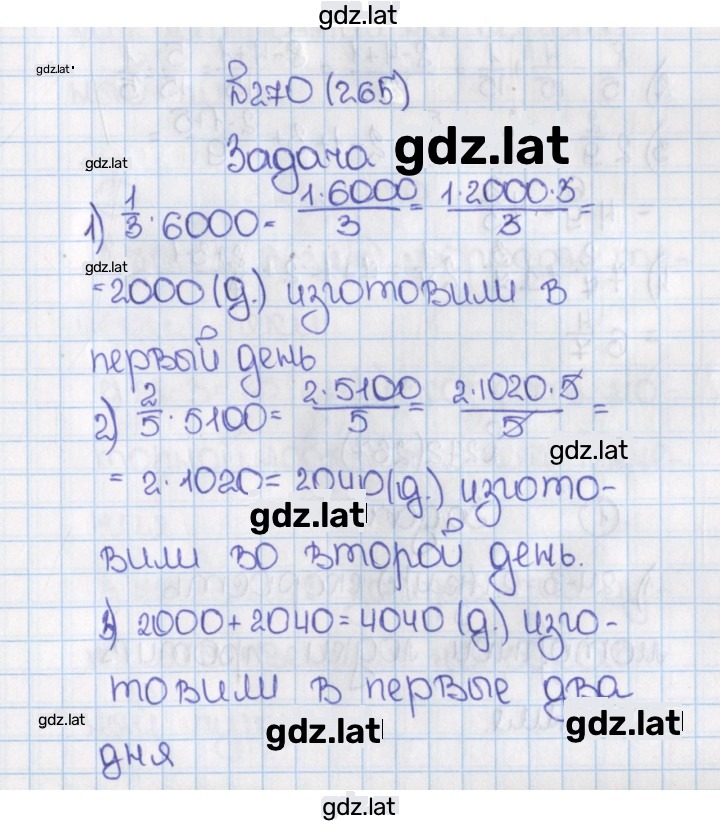 gdz.lat
gdz.lat
№270 (265)
gdz.lat
Задача gdz.lat
1) 1/3 · 6000 = 1·6000/3 = 1·2000·3/3 =
gdz.lat
= 2000 (д.) изготовили в
первый день
2) 2/5 · 5100 = 2·5100/5 = 2·1020·5/5 =
gdz.lat
= 2·1020 = 2040 (д.) изгото-
gdz.lat
вили во второй день.
3) 2000 + 2040 = 4040 (д.) изго-
товили в первые два
gdz.lat gdz.lat gdz.lat
дня
gdz.lat